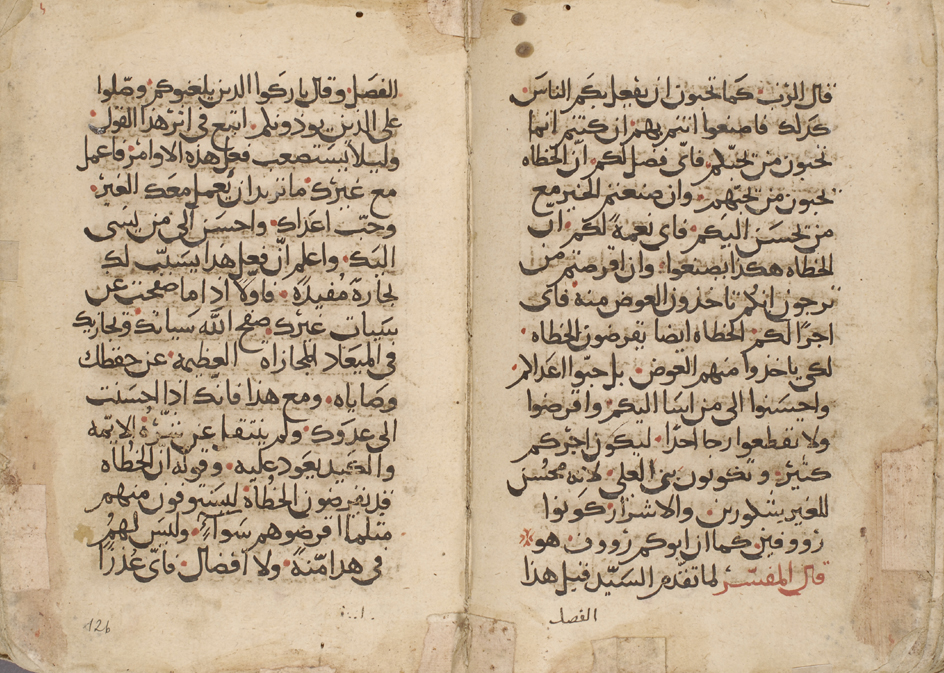 قال الرب كما تحبون ان يفعل بكم الناس
كذلك فاصنعوا انتم بهم ان كنتم انما
تحبون من يحبكم فاى فضل لكم ان الخطاه
تحبون من يحبهم وان صنعتم الخير مع
من يحسن اليكم فاى نعمة لكم ان
الخطاه هكذا يصنعوا وان اقرضتم من
ترجون انكم تاخذون العوض منه فاى
اجرًا لكم الخطاه ايضا يقرضون الخطاه
لكى ياخذوا منهم العوض بل حبوا اعداكم
واحسنوا الى من اسا اليكم واقرضوا
ولا تقطعوا رجا احدًا ليكون اجركم
كثير وتكونون بنى العلى لانه محسن
للغير شكورين والاشرار كونوا
رووفين كما ان ابوكم رووف هو
قال المفسر لما تقدم السيد قبل هذا
الفصل
الفصل وقال باركوا الدين يلعنوكم وصلوا
على الدين يودونكم اتبع فى اثر هذا القول
وليلا يستصعب فعل هذه الاوامر فاعمل
مع غيرك ما تريد ان يعمل معك الغير
وحب اعداك واحسن الى من يسى
اليك واعلم ان فعل هذا يسبب لك
تجارة مفيدة فاولا اذا ما صفحت عن
سيات غيرك صفح الله سياتك وتجازيك
فى الميعاد المجازاه العظيمة عن حفظك
وصاياه ومع هذا فانك اذا احسنت
الى عدوك ولم ينتقل عن الاتمه
والكيد يعود عليه وقوله ان الخطاه
قد يقرضون الخطاة ليستوفون منهم
مثلما اقرضوهم سواء وليس لهم
فى هذا منة ولا افضال فاى عذرًا
126